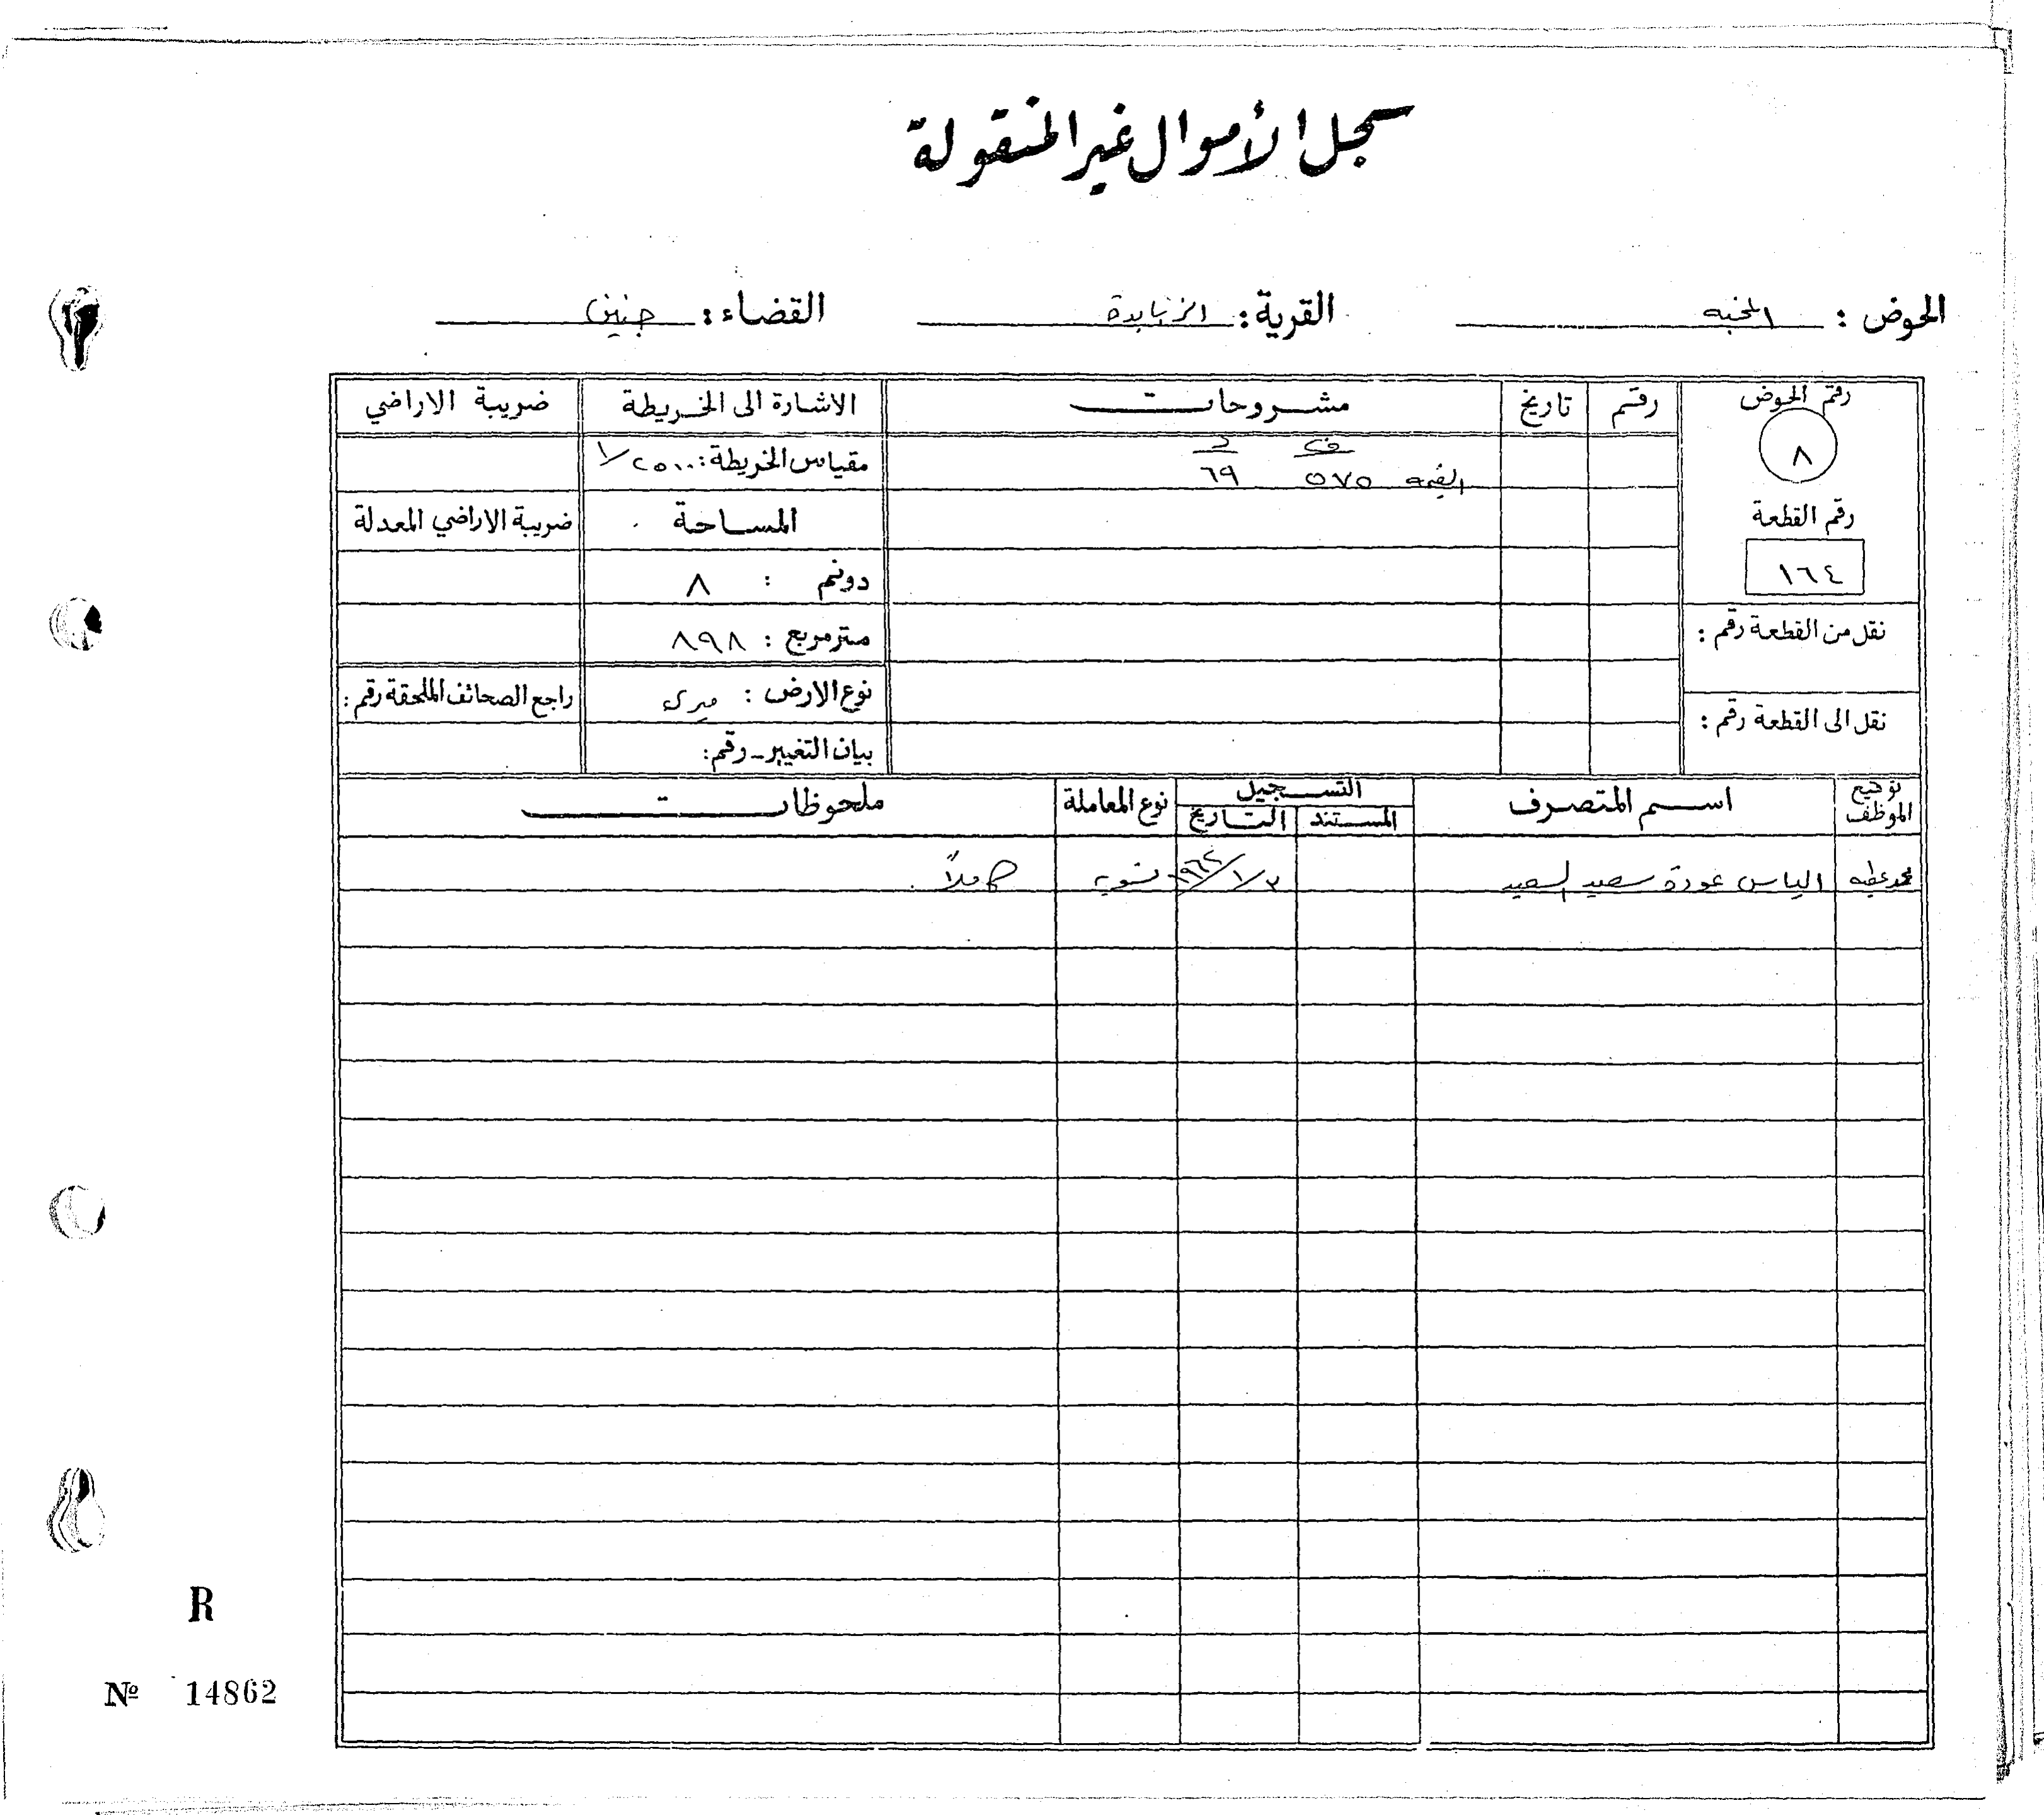 سجل الأموال غير المنقولة
الحوض : القرية : الزبابدة القضاء : جنين
رقم الحوض رقم تاريخ مشروحات الاشارة الى الخريطة ضريبة الاراضي
٨ ف د مقياس الخريطة : ١/٢٥٠٠
القيمه ٥٧٥ ٦٩
رقم القطعة المساحة ضريبة الاراضي المعدلة
١٦٤ دونم : ٨
نقل من القطعة رقم : متر مربع : ٨٩٨
نوع الارض : ميري راجع الصحائف الملحقة رقم :
نقل الى القطعة رقم : بيان التغيير - رقم :
توقيع الموظف اسم المتصرف التسجيل نوع المعاملة ملحوظات
المستند التاريخ
محمد عطيه الياس عودة سعيد السعيد تسويه كاملاً
R
Nº 14862